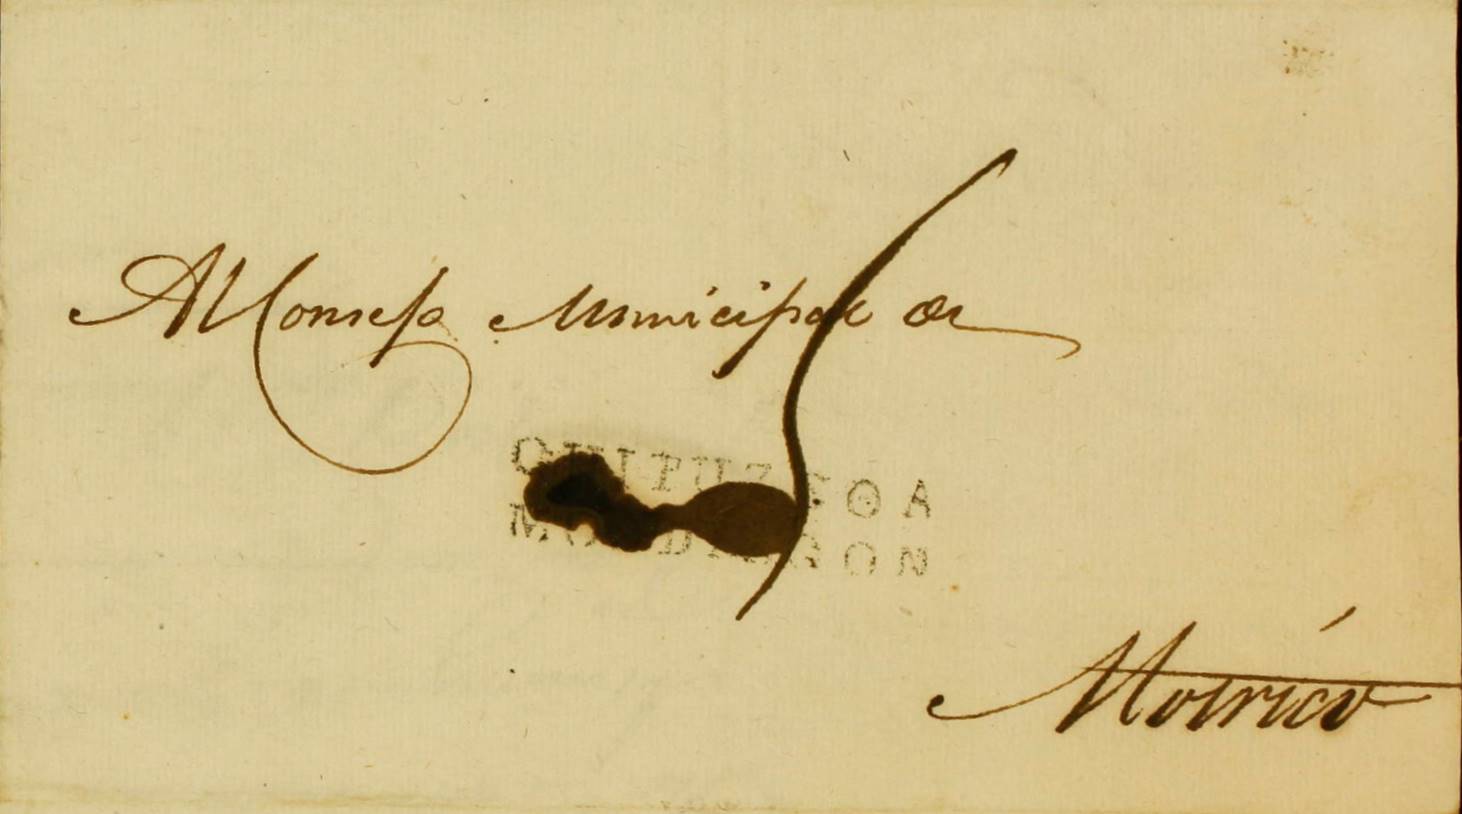 Al Consejo Municipal de
5
GUIPUZCOA
MONDRAGON
Motrico